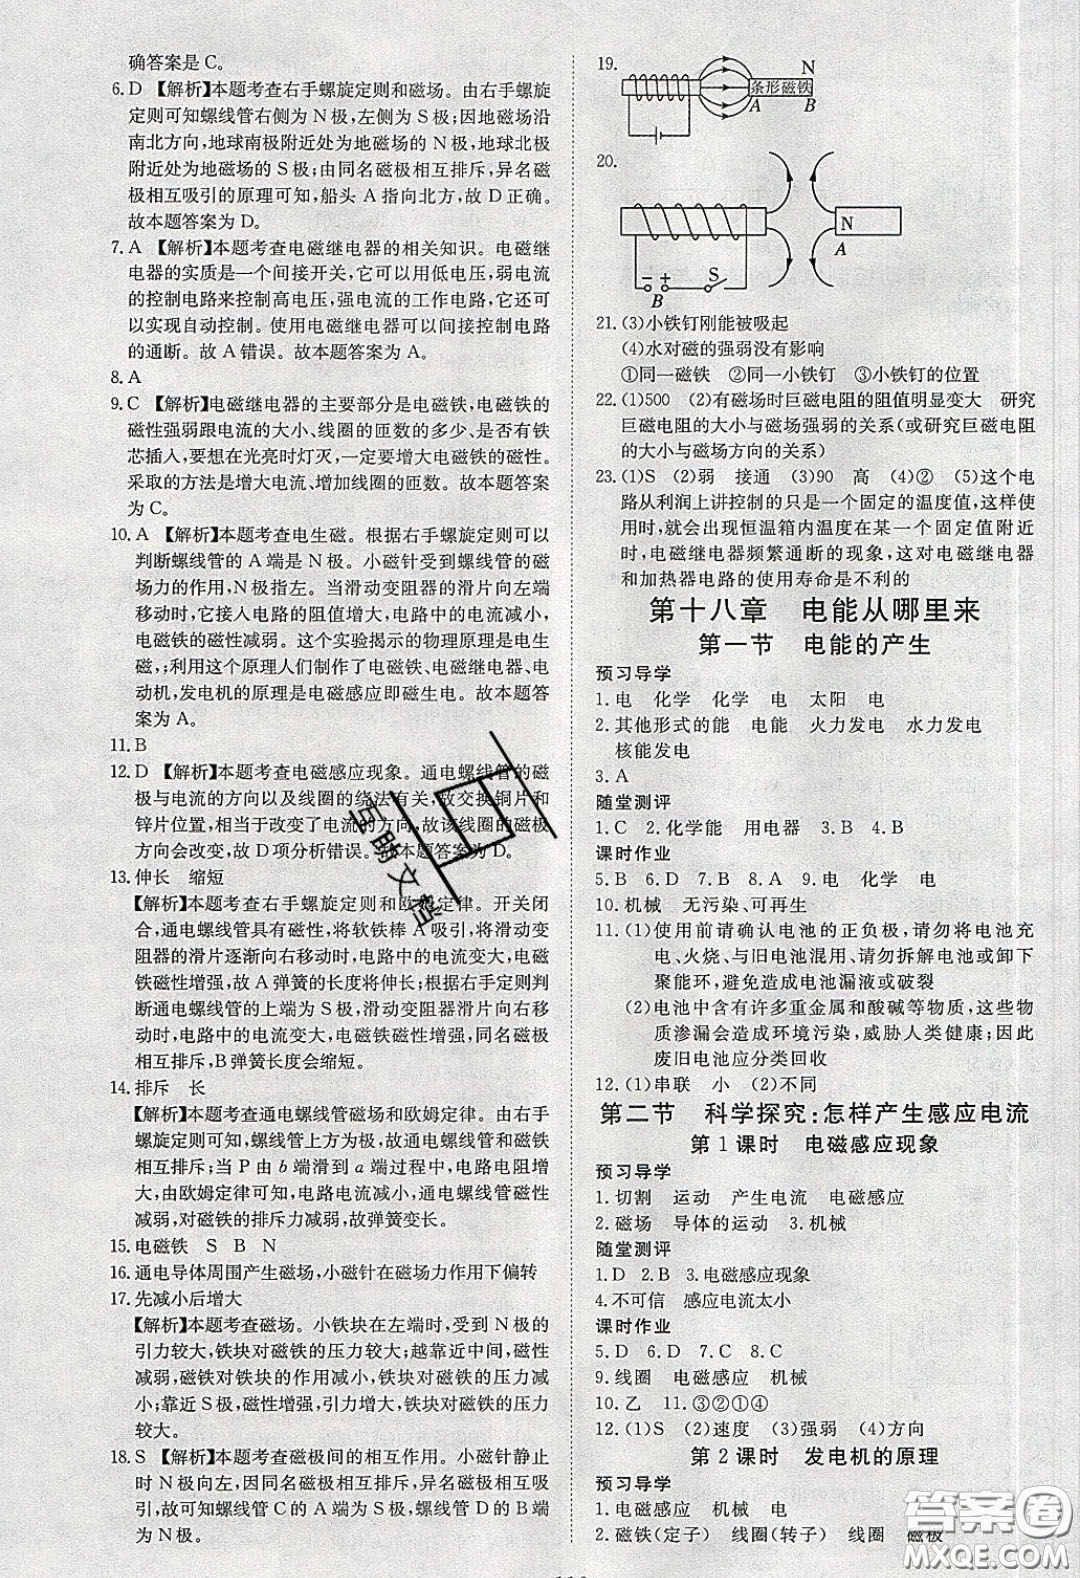 确答案是C。
6. D 【解析】本题考查右手螺旋定则和磁场。由右手螺旋
定则可知螺线管右侧为N极,左侧为S极;因地磁场沿
南北方向,地球南极附近处为地磁场的N极,地球北极
附近处为地磁场的S极;由同名磁极相互排斥,异名磁
极相互吸引的原理可知,船头A指向北方,故D正确。
故本题答案为D。
7. A 【解析】本题考查电磁继电器的相关知识。电磁继
电器的实质是一个间接开关,它可以用低电压、弱电流
的控制电路来控制高电压,强电流的工作电路,它还可
以实现自动控制。使用电磁继电器可以间接控制电路
的通断。故A错误。故本题答案为A。
8. A
9. C 【解析】电磁继电器的主要部分是电磁铁,电磁铁的
磁性强弱跟电流的大小、线圈的匝数的多少、是否有铁
芯插入,要想在光亮时灯灭,一定要增大电磁铁的磁性。
采取的方法是增大电流、增加线圈的匝数。故本题答案
为C。
10. A 【解析】本题考查电生磁。根据右手螺旋定则可以
判断螺线管的A端是N极。小磁针受到螺线管的磁
场力的作用,N极指左。当滑动变阻器的滑片向左端
移动时,它接入电路的阻值增大,电路中的电流减小,
电磁铁的磁性减弱。这个实验揭示的物理原理是电生
磁,;利用这个原理人们制作了电磁铁、电磁继电器、电
动机,发电机的原理是电磁感应即磁生电。故本题答
案为A。
11. B
12. D 【解析】本题考查电磁感应现象。通电螺线管的磁
极与电流的方向以及线圈的绕法有关,故交换铜片和
锌片位置,相当于改变了电流的方向,故该线圈的磁极
方向会改变,故D项分析错误。故本题答案为D。
13. 伸长 缩短
【解析】本题考查右手螺旋定则和欧姆定律。开关闭
合,通电螺线管具有磁性,将软铁棒A吸引,将滑动变
阻器的滑片逐渐向右移动的过程中,电流变大,通电磁
铁磁性增强,A弹簧的长度将伸长;根据右手定则可判
断通电螺线管的上端为S极,滑动变阻器滑片向右移
动时,电路中的电流变大,电磁铁磁性增强,同名磁极
相互排斥,B弹簧长度会缩短。
14. 排斥 长
【解析】本题考查通电螺线管磁场和欧姆定律。由右手
螺旋定则可知,螺线管上方为N极,故通电螺线管和磁铁
相互排斥;当P由b端滑到a端过程中,电路电阻增
大,由欧姆定律可知,电路电流减小,通电螺线管磁性
减弱,对磁铁的排斥力减小,故弹簧变长。
15. 电磁铁 S B N
16. 通电导体周围产生磁场,小磁针在磁场力作用下偏转
17. 先减小后增大
【解析】本题考查磁场。小铁块在左端时,受到N极的
引力较大,铁块对磁铁的压力较大;越靠近中间,磁性
减弱,磁铁对铁块的作用减小,铁块对磁铁的压力减
小;靠近S极,磁性增强,引力增大,铁块对磁铁的压力
较大。
18. S 【解析】本题考查磁极间的相互作用。小磁针静止
时N极向左,因同名磁极相互排斥、异名磁极相互吸
引,故可知螺线管C的A端为S极,螺线管D的B端
为N极。
19.
N
条形磁铁
A B
20.
N
A
S
B
21. (3)小铁钉刚能被吸起
(4)水对磁的强弱没有影响
①同一磁铁 ②同一小铁钉 ③小铁钉的位置
22. (1)500 (2)有磁场时巨磁电阻的阻值明显变大 研究
巨磁电阻的大小与磁场强弱的关系(或研究巨磁电阻
的大小与磁场方向的关系)
23. (1)S (2)弱 接通 (3)90 高 (4)② (5)这个电
路从利润上讲控制的只是一个固定的温度值,这样使
用时,就会出现恒温箱内温度在某一个固定值附近
时,电磁继电器频繁通断的现象,这对电磁继电器
和加热器电路的使用寿命是不利的
第十八章 电能从哪里来
第一节 电能的产生
预习导学
1. 电 化学 化学 电 太阳 电
2. 其他形式的能 电能 火力发电 水力发电
核能发电
3. A
随堂测评
1. C 2. 化学能 用电器 3. B 4. B
课时作业
5. B 6. D 7. B 8. A 9. 电 化学 电
10. 机械 无污染、可再生
11. (1)使用前请确认电池的正负极,请勿将电池充
电、火烧、与旧电池混用、请勿拆卸、请勿卸下
聚能环,避免造成电池漏液或破裂
(2)电池中含有许多重金属和酸碱等物质,这些物
质渗漏会造成环境污染,威胁人类健康;因此
废旧电池应分类回收
12. (1)串联 小 (2)不同
第二节 科学探究:怎样产生感应电流
第1课时 电磁感应现象
预习导学
1. 切割 运动 产生电流 电磁感应
2. 磁场 导体的运动 3. 机械
随堂测评
1. D 2. B 3. 电磁感应现象
4. 不可信 感应电流太小
课时作业
5. D 6. D 7. C 8. C
9. 线圈 电磁感应 机械
10. 乙 11. ③②①④
12. (1)S (2)速度 (3)强弱 (4)方向
第2课时 发电机的原理
预习导学
1. 电磁感应 机械 电
2. 磁铁(定子) 线圈(转子) 线圈 磁极
互助文档
答案圈
MXQE.COM